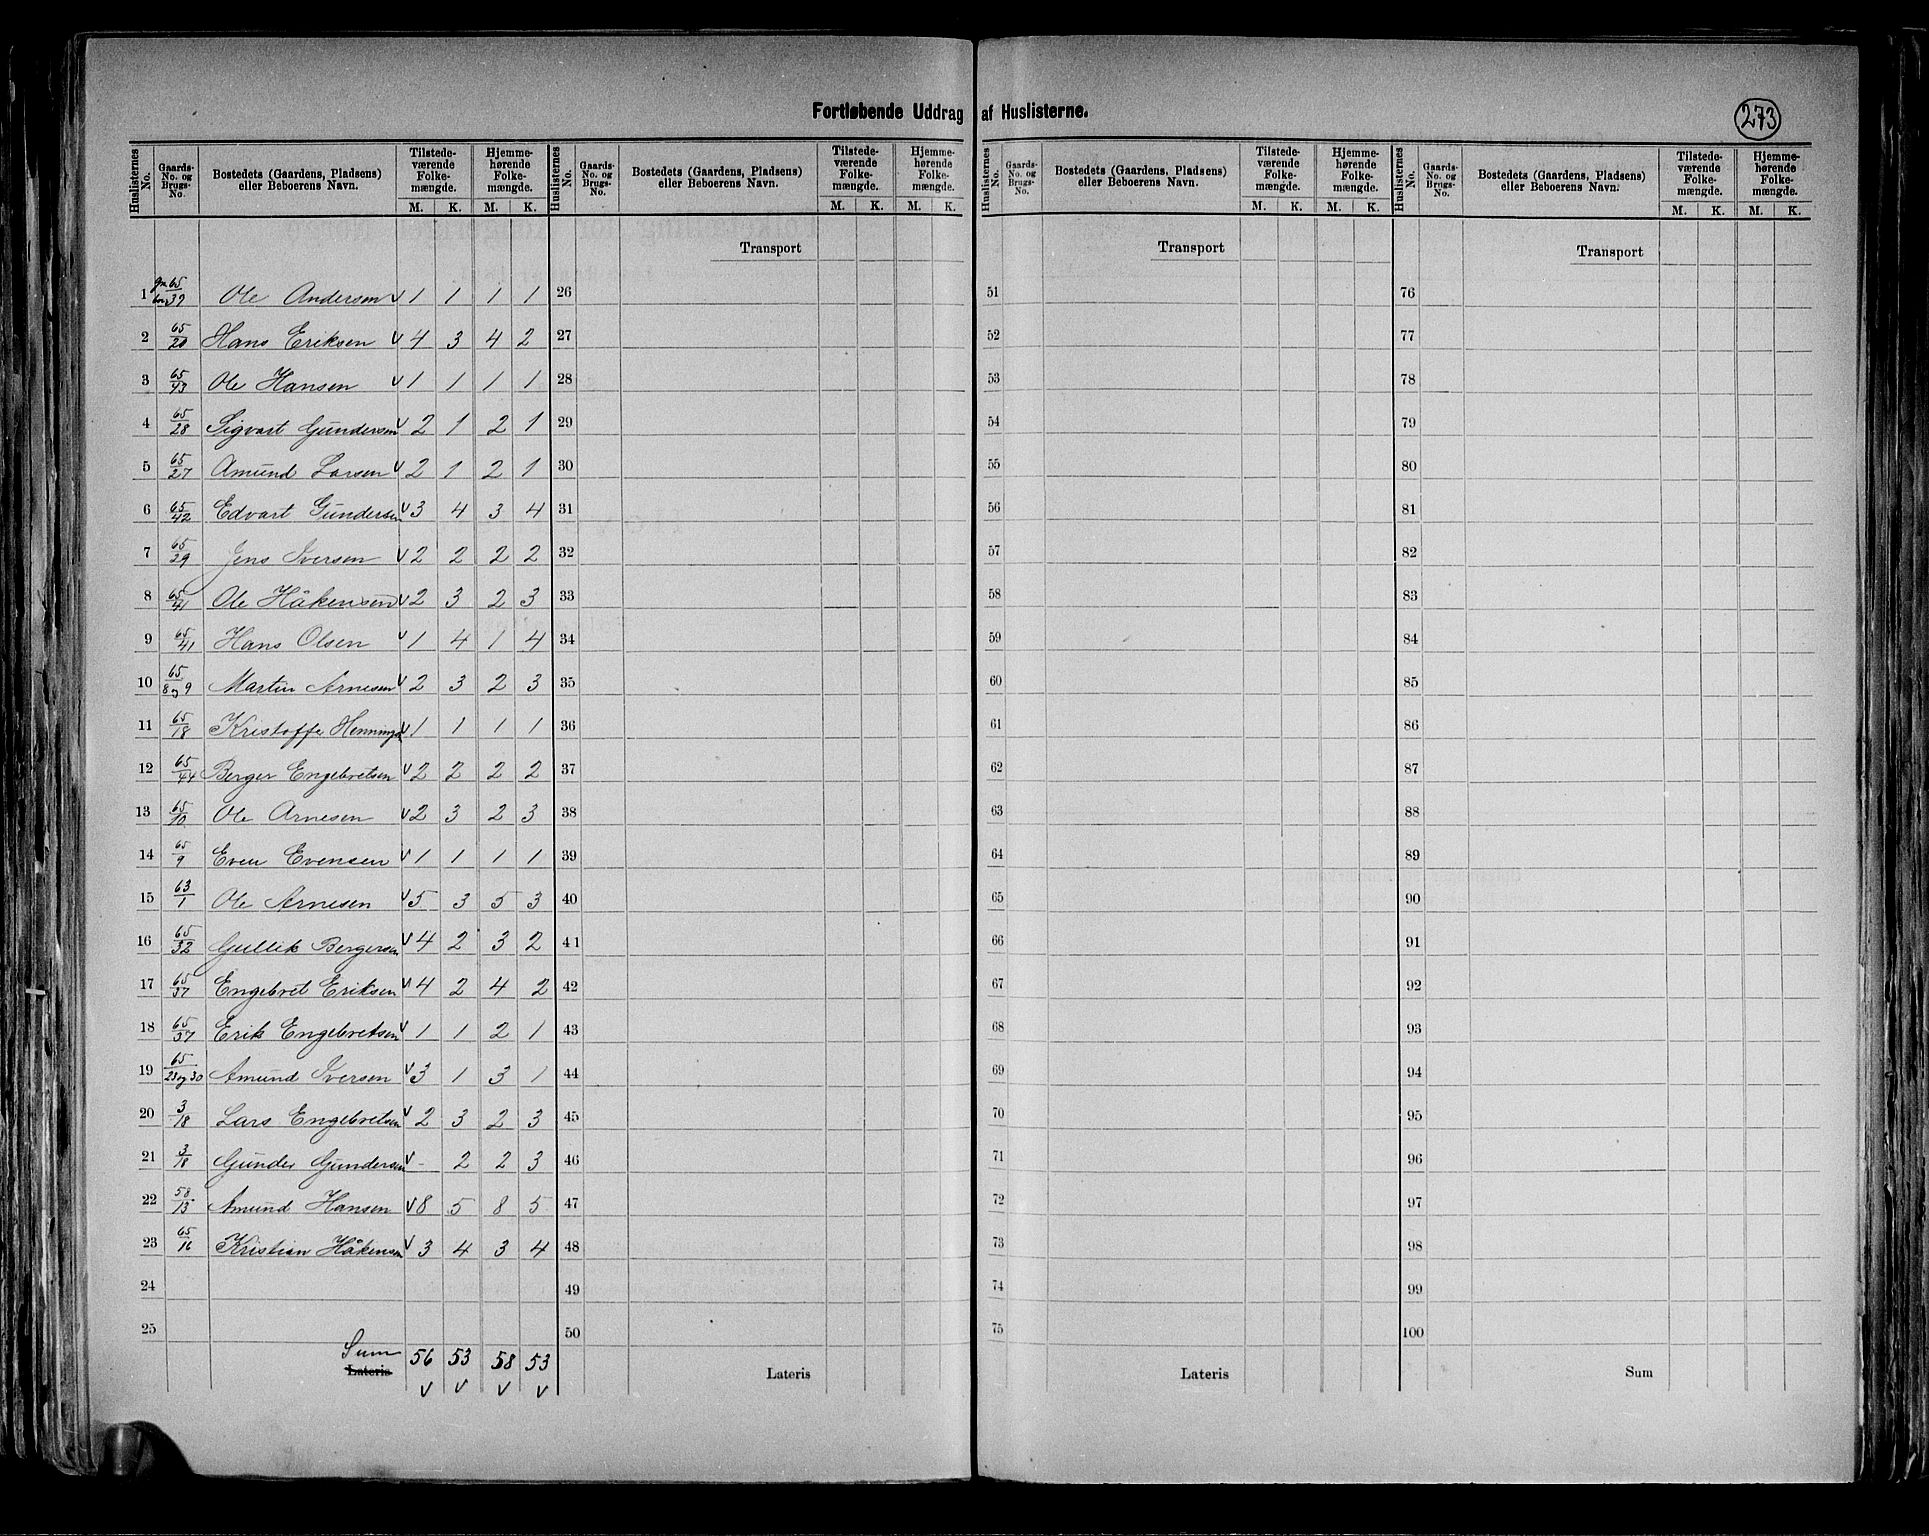 Fortløbende Uddrag af Huslisterne.
273
Huslisternes No. | Gaards-No. og Brugs-No. | Bostedets (Gaardens, Pladsens) eller Beboerens Navn. | Tilstedeværende Folkemængde. M. K. | Hjemmehørende Folkemængde. M. K.
Huslisternes No. | Gaards-No. og Brugs-No. | Bostedets (Gaardens, Pladsens) eller Beboerens Navn. | Tilstedeværende Folkemængde. M. K. | Hjemmehørende Folkemængde. M. K.
Huslisternes No. | Gaards-No. og Brugs-No. | Bostedets (Gaardens, Pladsens) eller Beboerens Navn. | Tilstedeværende Folkemængde. M. K. | Hjemmehørende Folkemængde. M. K.
Huslisternes No. | Gaards-No. og Brugs-No. | Bostedets (Gaardens, Pladsens) eller Beboerens Navn. | Tilstedeværende Folkemængde. M. K. | Hjemmehørende Folkemængde. M. K.
Transport Transport Transport
1 gn 65 / bn 39 Ole Andersen v 1 1 1 1 26 51 76
2 65/20 Hans Eriksen v 4 3 4 2 27 52 77
3 65/43 Ole Hansen v 1 1 1 1 28 53 78
4 65/28 Sigvart Gundersen v 2 1 2 1 29 54 79
5 65/27 Amund Larsen v 2 1 2 1 30 55 80
6 65/42 Edvart Gundersen v 3 4 3 4 31 56 81
7 65/29 Jens Iversen v 2 2 2 2 32 57 82
8 65/41 Ole Håkensen v 2 3 2 3 33 58 83
9 65/41 Hans Olsen v 1 4 1 4 34 59 84
10 65/8 og 9 Martin Arnesen v 2 3 2 3 35 60 85
11 65/18 Kristoffer v 1 1 1 1 36 61 86
12 65/44 Berger Engebretsen v 2 2 2 2 37 62 87
13 65/10 Ole Arnesen v 2 3 2 3 38 63 88
14 65/9 Even Evensen v 1 1 1 1 39 64 89
15 63/1 Ole Arnesen v 5 3 5 3 40 65 90
16 65/32 Gullik Bergersen v 4 2 3 2 41 66 91
17 65/37 Engebret Eriksen v 4 2 4 2 42 67 92
18 65/37 Erik Engebretsen v 1 1 2 1 43 68 93
19 65/23 og 30 Amund Iversen v 3 1 3 1 44 69 94
20 3/18 Lars Engebretsen v 2 3 2 3 45 70 95
21 3/18 Gunder Gundersen v - 2 2 3 46 71 96
22 58/13 Amund Hansen v 8 5 8 5 47 72 97
23 65/16 Kristian Håkensen v 3 4 3 4 48 73 98
24 49 74 99
25 50 75 100
Sum 56 53 58 53
Lateris v v v v Lateris Lateris Sum